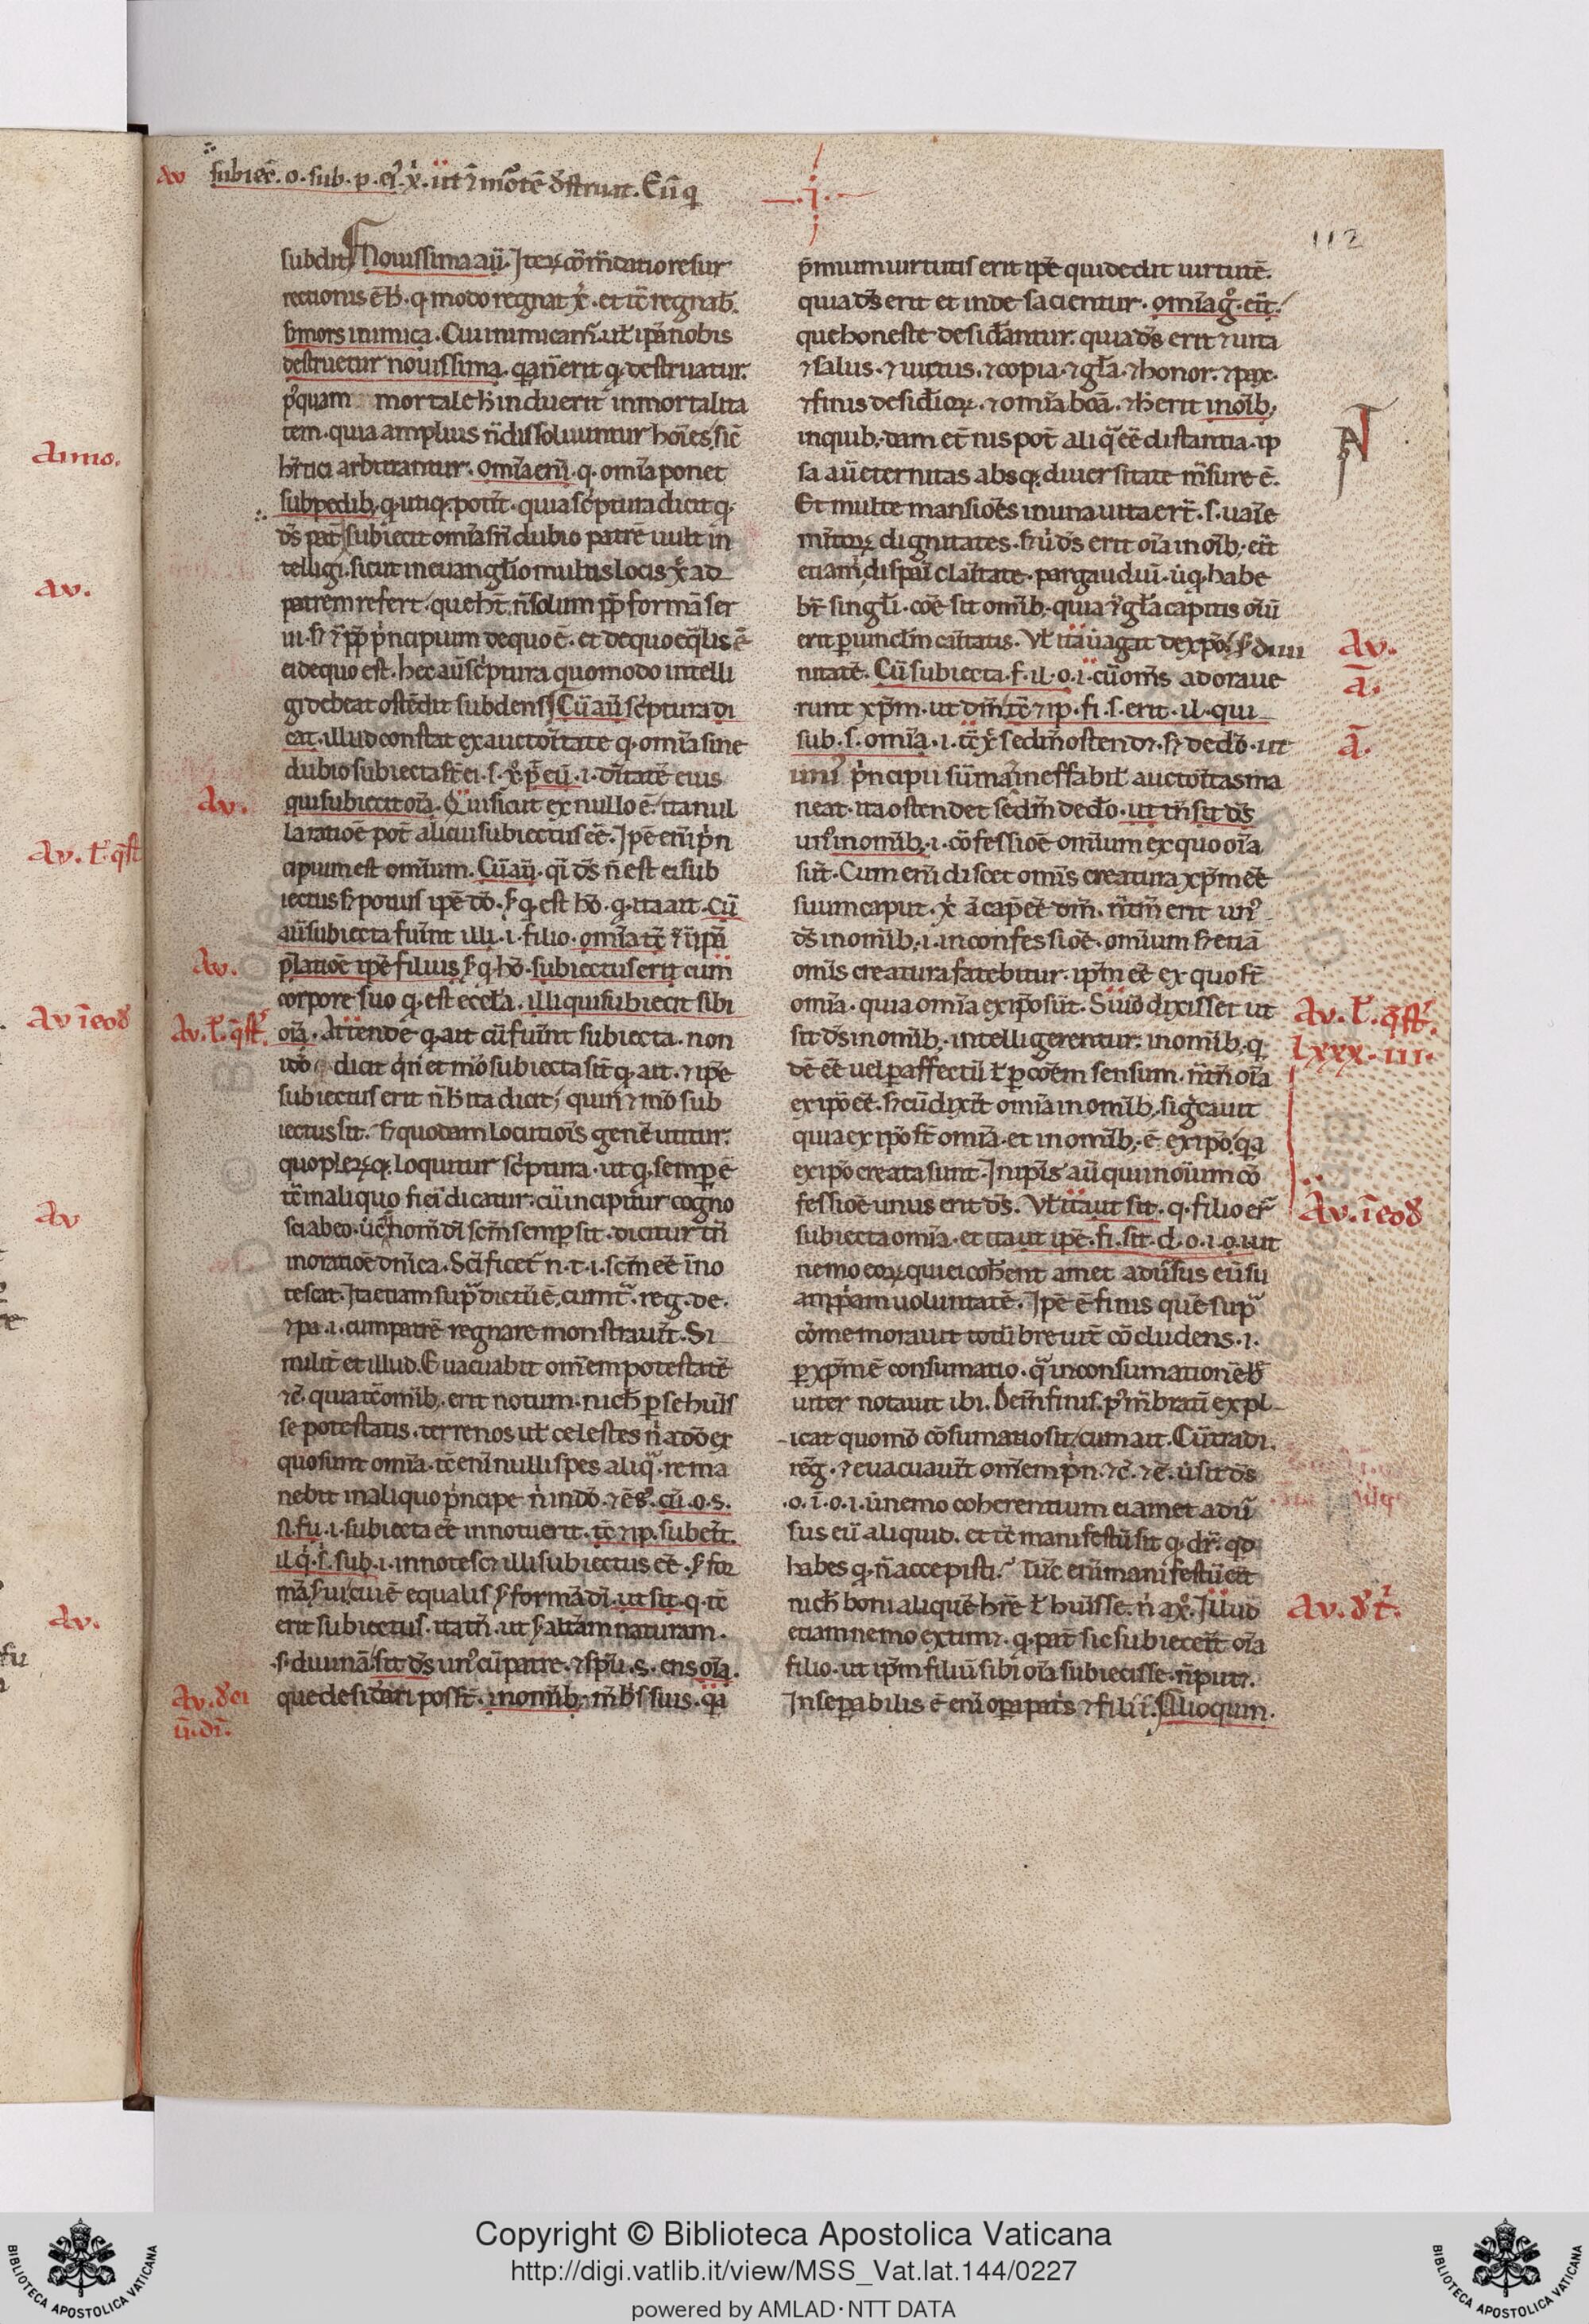 av subiec̄. o. sub. p. ei᷒. x̄. ut ⁊ mortē destruat. Eūq
.i.
112
subdit Nouissima aū. Iteꝝ cōmdatio resur
rectionis ē h̄. q̄ modo regnat x̄. et tc̄ regnab̄.
inimica. Cui inimicam̄. ul̄ ip̄a nobis
destruetur nouissima. q̄ destruatur.
p᷒quam mortale h̄ induerit inmortalita
tem. quia amplius n̄ dissoluuntur hoīes, sic̄
arbitrantur. omīa enī. q. omīa ponet
sub pedib; q. utiq; pot̄it. quia sc̄ptura dicit q.
d̄s pat̄ subiecit omīa sn̄ dubio patrē uult in
telligi. sicut in euangl̄io multis locis x̄ ad
patrem refert. que h̄t. n̄ solum pp̄ formā ser
ui. s; ⁊ pp̄ p̄ncipium de quo ē. et de quo eq̄lis ē
ei de quo est. hec aū sc̄ptura quomodo intelli
gi debeat ostēdit subdens, Cū aū sc̄ptura di
cat. illud constat ex auctoritate q. omīa sine
dubio subiecta st̄ ei. s. x̄. p̄. eū. i. d̄itatē eius
qui subiecit oīa. Qui sicut ex nullo ē. ita nul
la ratiōe pot̄ alicui subiectus eē. Ip̄e enī p̄n
cipium est omīum. Cū aū. d̄s n̄ est ei sub
iectus s; potius ip̄e d̄o. s̄ q. est hō. q. ita ait. Cū
aū subiecta fuīnt illi. i. filio. omīa tc̄ ⁊ ip̄a
p̄latiōe ip̄e filius s̄ q. hō. subiectus erit cum
corpore suo q̄ est eccl̄a. illi qui subiecit sibi
oīa. Attende q̄ ait cū fuīnt subiecta. non
id̄o dicit et m̄o subiecta sīt q̄ ait. ⁊ ip̄e
subiectus erit n̄ h̄ ita dicit, quin ⁊ m̄o sub
iectus sit. s; quodam locutiōis genē utitur.
quo pleꝝq; loquitur sc̄ptura. ut q. semp̄ ē
tc̄ in aliquo fieri dicatur. cū incipitur cogno
sci ab eo. nom̄ d̄i sc̄m semp̄ sit. dicitur tn̄
in oratiōe dn̄ica. Sc̄ificet̄ n. t. i. sc̄m eē īno
tescat. Ita etiam sup̄ dictū ē, cum t̄. reg. de.
⁊ pa. i. cum patrē regnare monstrauīt. Si
milit̄ et illud. Euacuabit om̄em potestatē
⁊c̄. quia tc̄ omīb; erit notum. nich̄ p̄ se huīs
se potestatis. terrenos ul̄ celestes n̄ a d̄o ex
quo sunt omīa. tc̄ enī nulli spes aliq̄. rema
nebit in aliquo p̄ncipe n̄ in d̄o. cū. o. s.
fu. i. subiecta eē innotuerit. tc̄ ⁊ ip. sub erit.
il. q̄. s. sub. i. innotescet illi subiectus eē. s̄ for
mā s̄ui, cui ē equalis s̄ formā d̄i. ut sit. q. tc̄
erit subiectus. ita tn̄. ut s̄ altam naturam.
.s. diuinā. sit d̄s un᷒ cū patre. ⁊ sp̄u. s. ens oīa.
que desid̄ari poss̄t. in omīb; m̄b̄s suis. q̄a
p̄mium uirtutis erit ip̄e qui dedit uirtutē.
quia d̄s erit et inde sacientur. omīa g̊. erīt.
que honeste desid̄antur. quia d̄s erit ⁊ uita
⁊ salus. ⁊ uictus. ⁊ copia. ⁊ gl̄a. ⁊ honor. ⁊ pax.
⁊ finis desid̄ioꝝ. ⁊ omīa bōa. ⁊ h̄ erit in oīb;
inquib; dam et̄ n̄is pot̄ eē distantia. ip
sa aū eternitas absq; diuersitate m̄sure ē.
Et multe mansiōes in una uita erīt. s. uaīe
m̄itoꝝ dignitates. s; ū d̄s erit oīa in oīb; erīt
etiam, dispaī claītate. par gaudiū. ū q. habe
bt̄ singl̄i. cōe sit omīb; quia ⁊ gl̄a capitis oīū
erit p̄ uinclm caītatis. Vl̄ ita ū agat de xp̄o s̄ diui
nitatē. Cū subiecta. f. il. o. i. cū oms̄ adoraue
runt xp̄m. ut dm̄ tc̄ ⁊ ip. fi. s. erit. il. qui
sub. s. omīa. i. tc̄ x̄ se dm̄ ostendet. s; de d̄o. ut
uni᷒ p̄ncipii sūma ⁊ ineffabil̄ auctoītas ma
neat. ita ostendet se dm̄ de d̄o. ut tn̄ sit d̄s
un᷒ in omīb; i. cōfessiōe omīum ex quo oīa
sūt. Cum enī discet omīs creatura xp̄m eē
suum caput. x̄ ā cap̄ eē dm̄. n̄ tn̄ erit un᷒
d̄s in omīb; i. in confessiōe. omīum s; etiā
omīs creatura fatebitur. ip̄m eē ex quo st̄
omīa. quia omīa ex ip̄o sūt. dixisset ut
sit d̄s in omīb; intelligerentur: in omīb; q̄
dē eē uel p̄ affectū ł p̄ cōem sensum. n̄ tn̄ oīa
ex ip̄o eē. s; cū dixit omīa in omīb; sigcauit
quia ex ip̄o st̄ omīa. et in omīb; ē ex ip̄o, q̄a
ex ip̄o creata sunt. In ip̄is aū quī noīum cō
fessiōe unus erit d̄s. Vl̄ ita ut sit. q. filio er̄
subiecta omīa. et ita ut ip̄e. fi. sit. d. o. i. o. ut
nemo eoꝝ qui ei coh̄ent amet adūsus eū su
am p̄am uoluntatē. Ip̄e ē finis quē sup̄
cōmemorauit totū breuit̄ cōcludens. i.
p̄ xp̄m ē consumatio. q̄ in consumationē
uiter notauit ibi. Dein finis. p᷒ m̄bratī expl
icat quomō cōsumatio sit, cum ait. Cū tradi.
reg. ⁊ euacuauīt om̄em p̄n. ⁊c̄. ⁊c̄. ū sit d̄s
.o. ī. o. i. ū nemo coherentium ei amet adū
sus eū aliquid. et tc̄ manifestū sit q. dr̄. qd̄
habes q. n̄ accepisti. Tūc enī manifestū erīt
nich̄ boni aliquē hr̄e ł huīsse. n̄ a x̊. Illud
etiam nemo extimet. q. pat̄ sic subiecerīt oīa
filio. ut ip̄m filiū sibi oīa subiecisse. n̄ putet.
Insep̄abilis ē enī op̄a pat̄s ⁊ filii. Alioquin.
Av.
Av.
Av. ł. q̄st᷒.
Av. de ci
ū. di.
Av.
ā.
ā.
Av. ł. q̄st᷒.
lxxx. iii.
Av. ī eod̄
Av. de t᷒.
av.
Av. ł. q̄st
Av ī eod̄
Av
av.
Copyright © Biblioteca Apostolica Vaticana
http://digi.vatlib.it/view/MSS_Vat.lat.144/0227
powered by AMLAD·NTT DATA
BIBLIOTECA APOSTOLICA VATICANA
BIBLIOTECA APOSTOLICA VATICANA